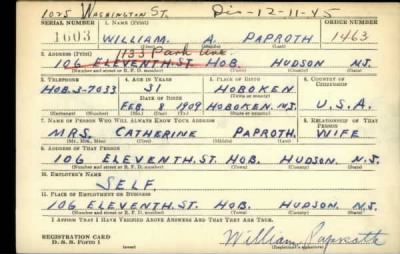 1025 Washington St. Dis-12-11-45
SERIAL NUMBER 1. NAME (Print) ORDER NUMBER
1603 WILLIAM. A. PAPROTH 1463
1133 Park Ave.
2. ADDRESS (Print)
106 ELEVENTH.ST. HOB. HUDSON N.J.
(Number and street or R. F. D. number) (Town) (County) (State)
3. TELEPHONE 4. AGE IN YEARS 5. PLACE OF BIRTH 6. COUNTRY OF CITIZENSHIP
HOB.3-7033 31 HOBOKEN
DATE OF BIRTH
FEB. 8 1909 HOBOKEN. N.J. U.S.A.
(Exchange) (Number) (Mo.) (Day) (Yr.) (State or country)
7. NAME OF PERSON WHO WILL ALWAYS KNOW YOUR ADDRESS 8. RELATIONSHIP OF THAT PERSON
MRS. CATHERINE PAPROTH WIFE
(Mr., Mrs., Miss) (First) (Middle) (Last)
9. ADDRESS OF THAT PERSON
106 ELEVENTH.ST. HOB. HUDSON. N.J.
(Number and street or R. F. D. number) (Town) (County) (State)
10. EMPLOYER'S NAME
SELF.
11. PLACE OF EMPLOYMENT OR BUSINESS
106 ELEVENTH.ST. HOB. HUDSON. N.J.
(Number and street or R. F. D. number) (Town) (County) (State)
I AFFIRM THAT I HAVE VERIFIED ABOVE ANSWERS AND THAT THEY ARE TRUE.
REGISTRATION CARD
D. S. S. Form 1 William Paproth
(Registrant's signature)